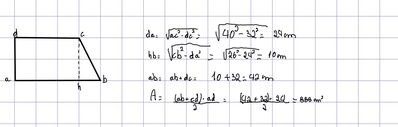 d c
da: √ac² - dc² = √40² - 32² = 24 cm
hb = √cb² - da² = √26² - 24² = 10 m
a h b
ab: ab + dc: 10 + 32 = 42 cm
A = (ab + cd) · ad / 2 = (42 + 32) · 24 / 2 = 888 m²